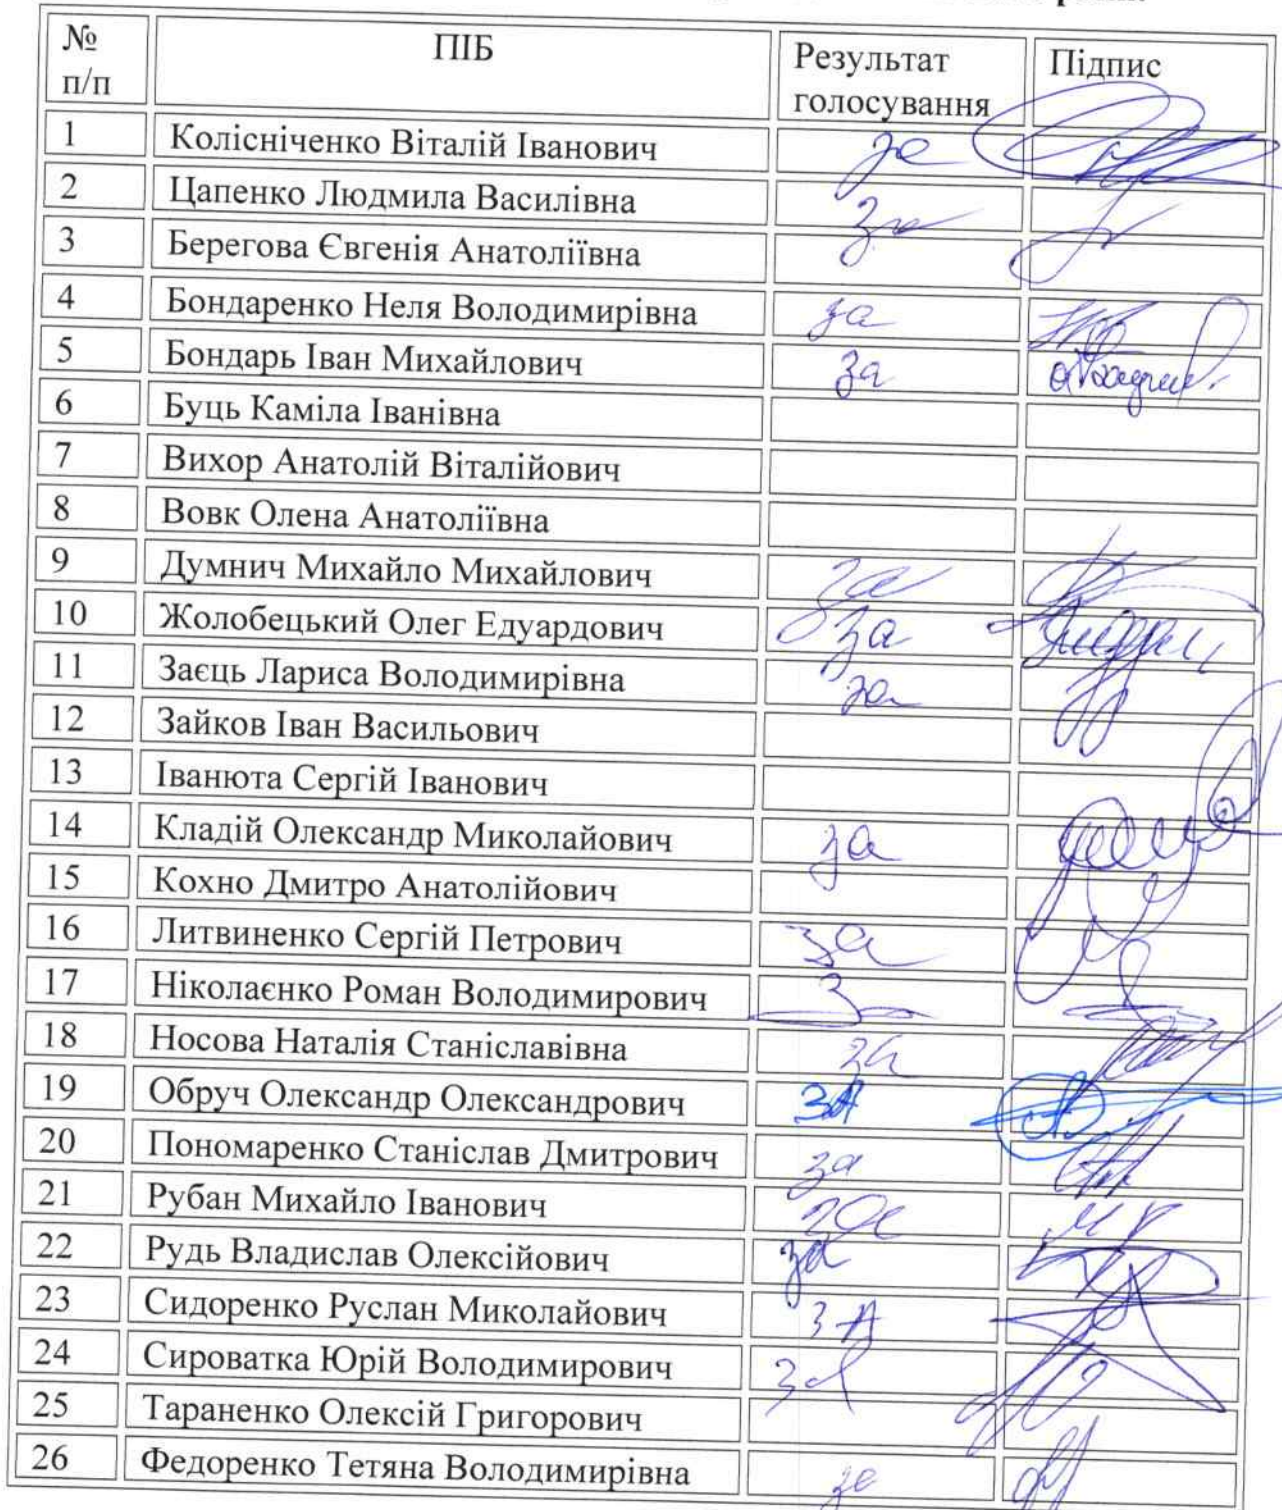 № п/п ПІБ Результат голосування Підпис
1 Колісніченко Віталій Іванович за
2 Цапенко Людмила Василівна за
3 Берегова Євгенія Анатоліївна
4 Бондаренко Неля Володимирівна за
5 Бондарь Іван Михайлович за
6 Буць Каміла Іванівна
7 Вихор Анатолій Віталійович
8 Вовк Олена Анатоліївна
9 Думнич Михайло Михайлович за
10 Жолобецький Олег Едуардович за
11 Заєць Лариса Володимирівна за
12 Зайков Іван Васильович
13 Іванюта Сергій Іванович
14 Кладій Олександр Миколайович за
15 Кохно Дмитро Анатолійович
16 Литвиненко Сергій Петрович за
17 Ніколаєнко Роман Володимирович за
18 Носова Наталія Станіславівна за
19 Обруч Олександр Олександрович ЗА
20 Пономаренко Станіслав Дмитрович за
21 Рубан Михайло Іванович за
22 Рудь Владислав Олексійович за
23 Сидоренко Руслан Миколайович ЗА
24 Сироватка Юрій Володимирович за
25 Тараненко Олексій Григорович
26 Федоренко Тетяна Володимирівна за